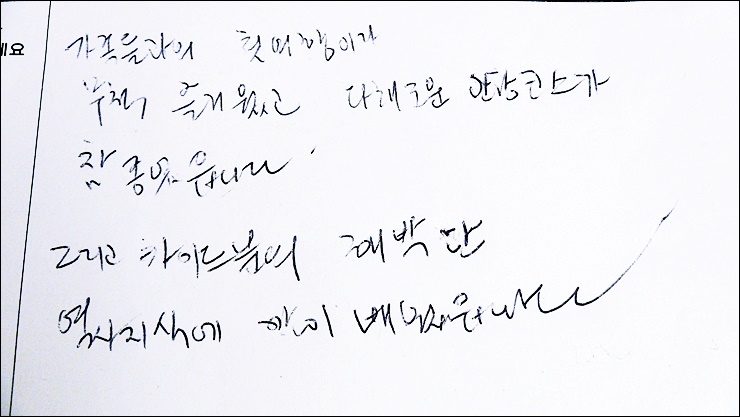 세요
가족들과의 첫여행이라
무척 즐거웠고 다채로운 관광코스가
참 좋았습니다.
그리고 가이드분의 해박한
역사지식에 많이 배웠습니다